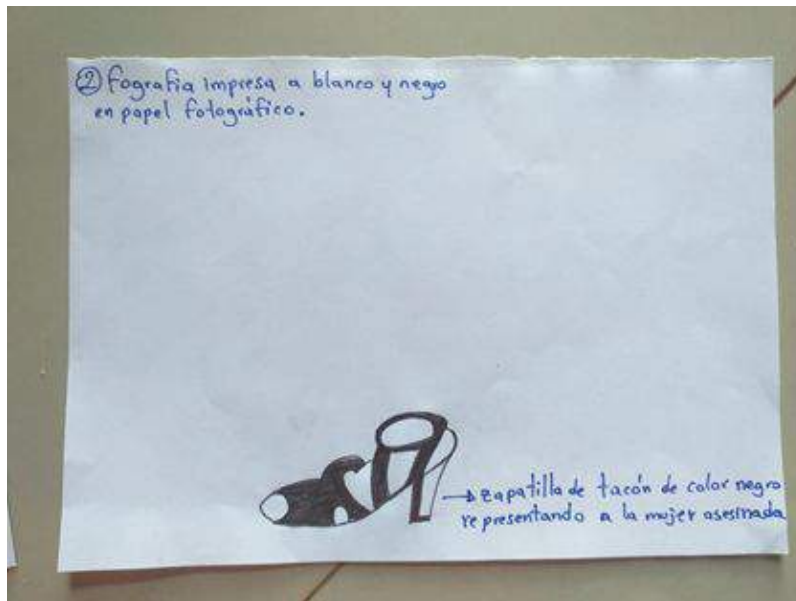 ② fografia impresa a blanco y negro
en papel fotográfico.
→ zapatilla de tacón de color negro
representando a la mujer asesinada